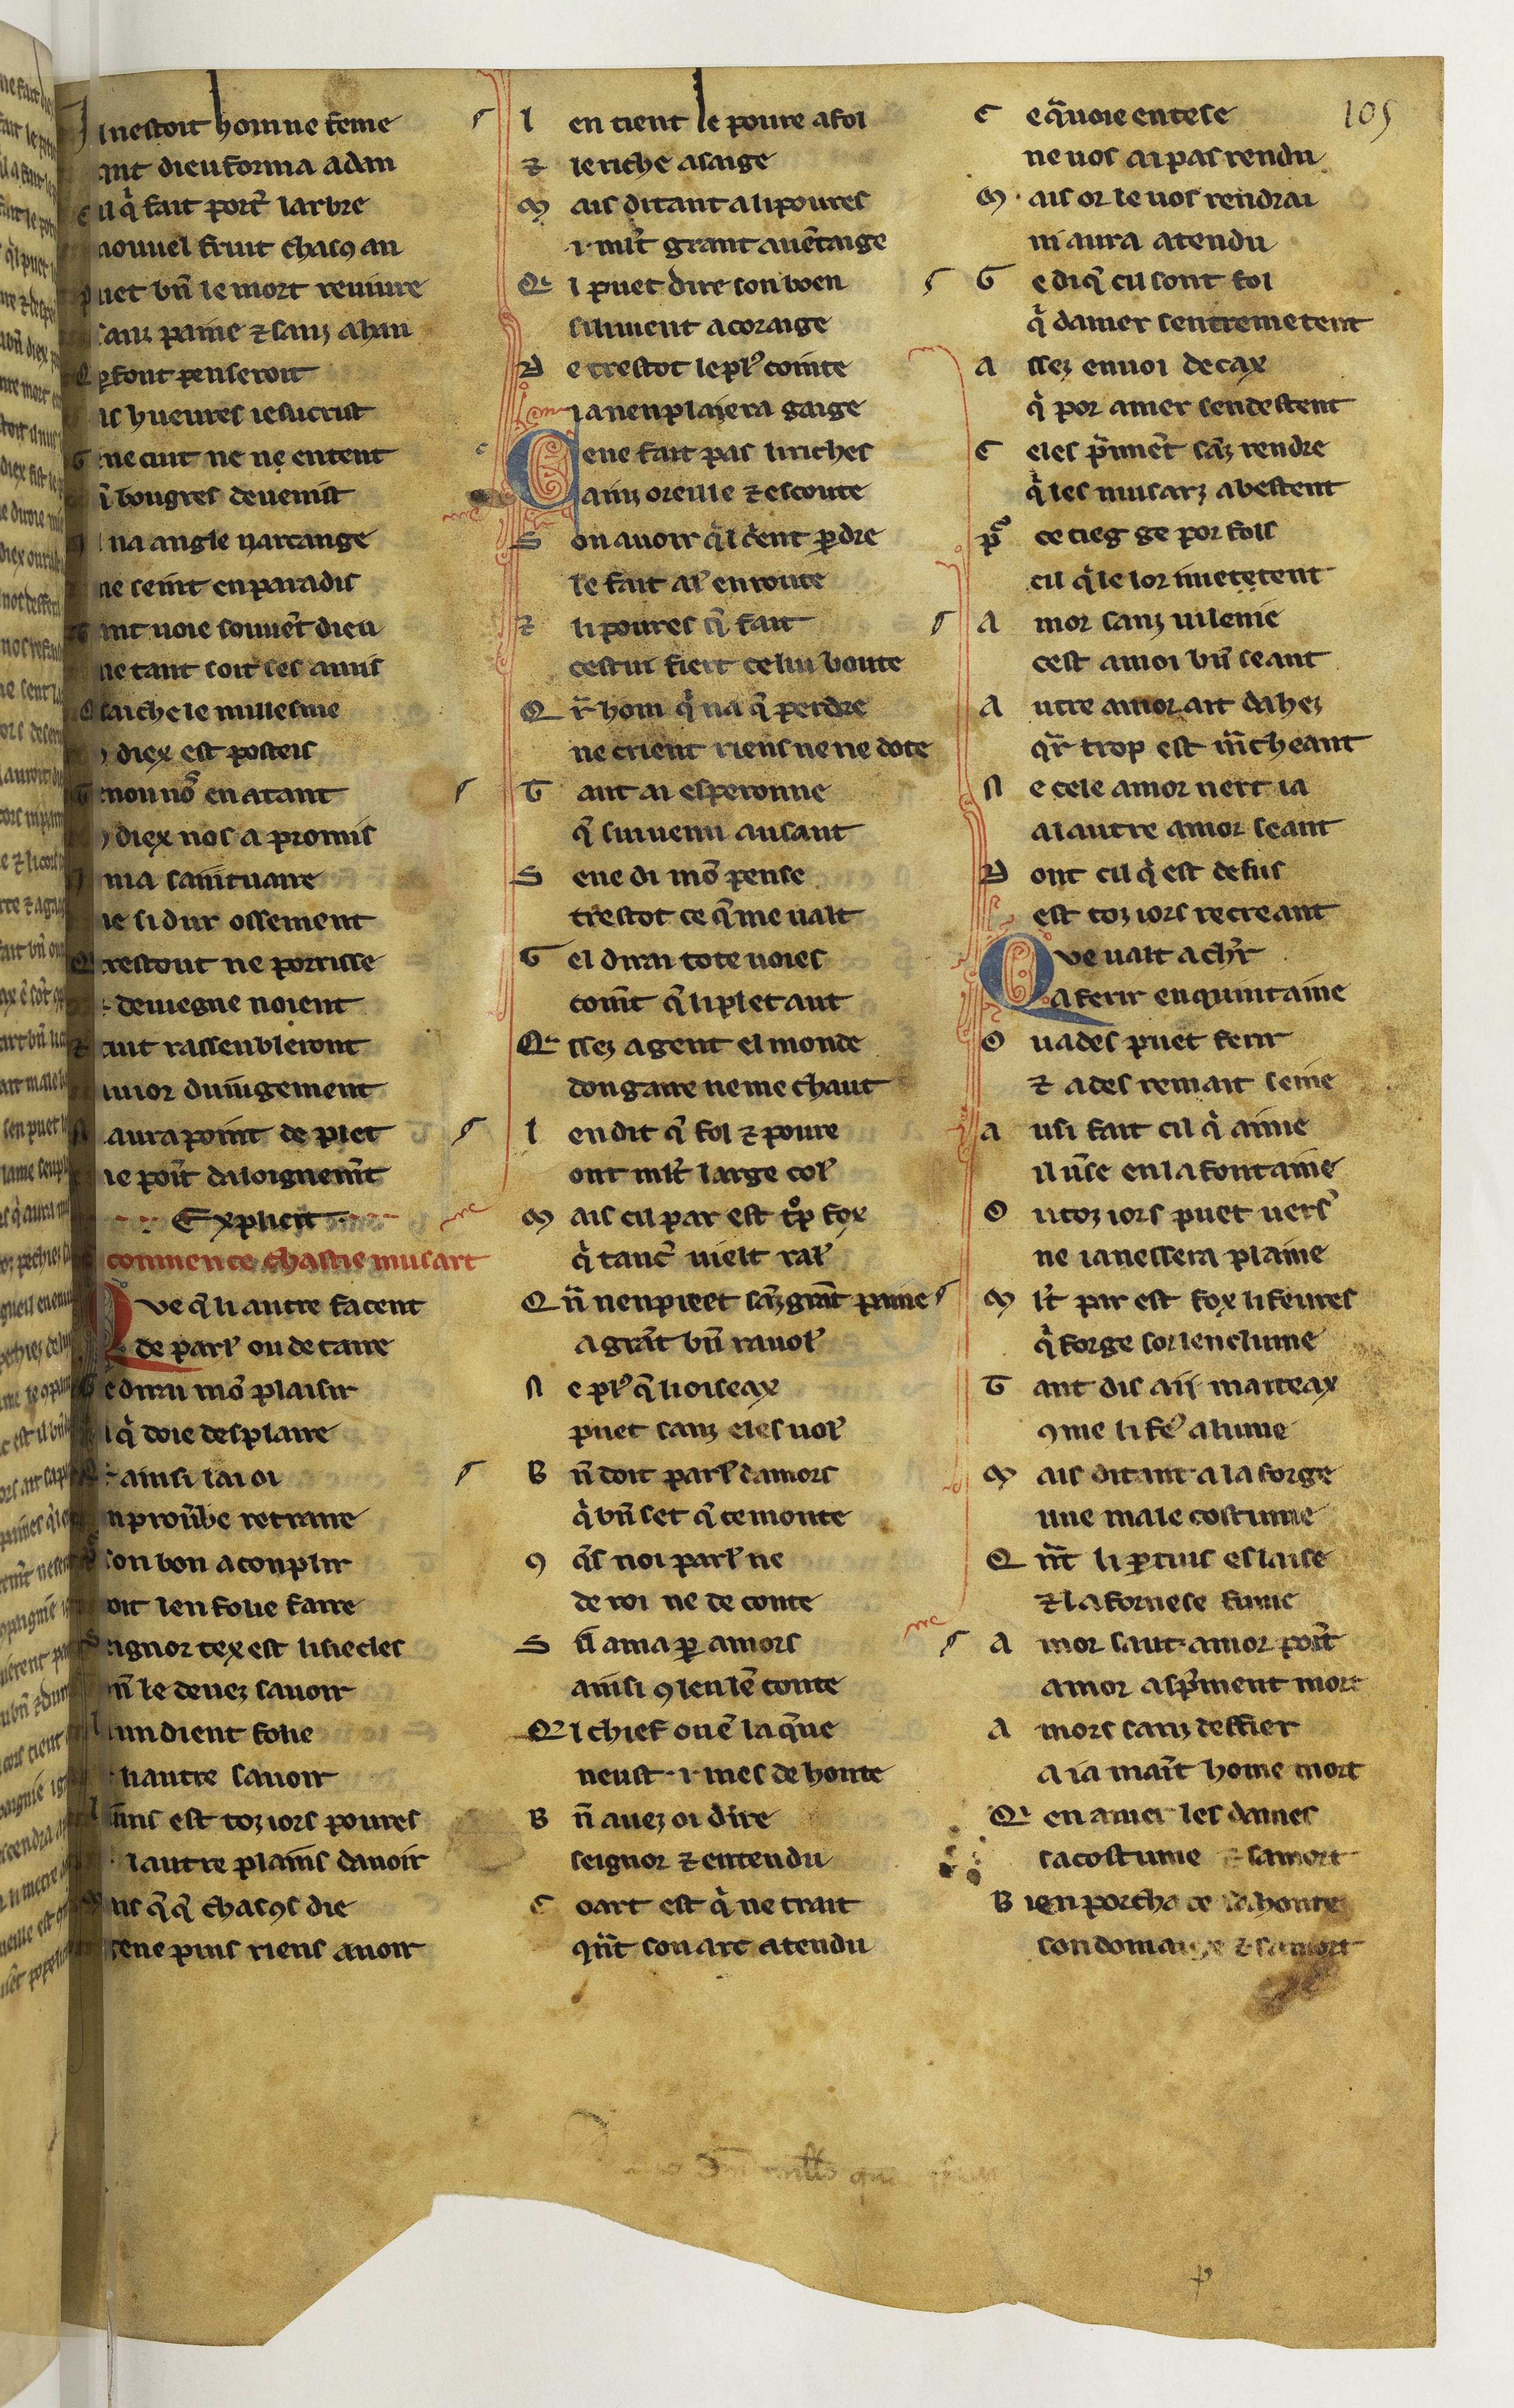 105
I lnestoit homne feme
ant dieu forma adan
cil q̾ fait port̾ larbre
nouuel fruit chacꝯ an
puet bn̄ le mort reuiure
sanz paine ⁊ sanz ahan
ꝑfont penseroit
is hueures iesucrist
ne cuit ne ne entent
n̄ bougres deuenist
l na angle narcange
ne seint en paradis
nt uoie souuēt dieu
ne tant soit ses amis
saiche le millesme
diex est posteis
non nō en atant
diex nos a promis
nia saintuaire
ne si dur ossement
trestout ne porrisse
deuiegne noient
tuit rassenbleront
iuior du iugement
aura point de plet
ne poīt daloignem̄t
Explicit
commence chastie musart
Que q̄ li autre facent
de parl̾ ou de taire
e dirai mō plaisir
i q̾ doie desplaire
ainsi lai oi
n prou̾be retraire
son bon aconplir
oit len folie faire
eignor tex est li siecles
n̄ le deuez sauoir
lun dient folie
li autre sauoir
luns est toz iors poures
lautre plains dauoir
is q̄ q̄ chacꝯs die
sene puis riens auoir
I en tient le poure a fol
⁊ le riche a saige
M ais ditant a li poures
.i. ml̾t grant auētaige
Q l puet dire son boen
sil iuient a coraige
D e trestot le pl̾ cointe
ia nen plaiera gaige
C e ne fait pas li riches
ainz oreille ⁊ escoute
S on auoir q̾l crient ꝑdre
le fait al̾ en route
⁊ li poures q̄ fait
cestui fiert celui boute
Q r̄ hom q̾ na q̄ perdre
ne crient riens ne ne dote
T ant ai esperonne
q̄ sui uenu ausant
S ene di mō pense
trestot ce q̄ me ualt
G el dirai tote uoies
com̄t q̄ li plet aut
A ssez a gent el monde
don gaire ne me chaut
I en dit q̄ fol ⁊ poure
ont ml̾t large col̾
M ais cil par est trop fox
q̾ tanc̾ uielt ral̾
Q n̄ nen pieet sāz grāt paine
a grāt bn̄ rauol̾
N e pl̾ q̄ li oiseax
puet sanz eles uol̾
B n̄ doit parl̾ damors
q̾ bn̄ set q̄ ce monte
ꝯ q̄s noi parl̾ ne
de roi ne de conte
S il ama ꝑ amors
ainsi ꝯ len lē conte
Q l chief ou ē la q̄ue
neust .i. mes de honte
B n̄ auez oi dire
seignor ⁊ entendu
C oart est q̾ ne trait
qn̄t son arc a tendu
C e q̾uoie en tese
ne uos ai pas rendu
M ais or le uos rendrai
ni aura atendu
G e di q̄ cil sont fol
q̾ damer sentremetent
A ssez en uoi de cax
q̾ por amer sendestent
C eles p̄nnēt sāz rendre
q̾ les musarz abestent
p̄ ce tieg ge por fols
cil q̾ le lor i metetent
A mor sanz uilenie
cest amoi bn̄ seant
A utre amor ait dahez
qr̄ trop est m̄cheant
N e cele amor nert ia
al autre amor seant
D ont cil q̾ est desus
est toz iors recreant
Que ualt a ch̾r
a ferir en quintaine
O u ades puet ferir
⁊ ades remait seine
A usi fait cil q̾ aime
il u̾se en la fontaine
O u toz iors puet uers̾
ne ia nessera plaine
M lt̄ par est fox li feures
q̾ forge sor lenclume
T ant dis a .ii. marteax
ꝯme li fe̾ alume
M ais ditant a la forge
une male costume
Q nt̄ li ꝑtuis eslaise
⁊ la fornese fume
A mor saut amor poīt
amor aspr̄ment mort
A mors sanz deffier
a ia maīt home mort
Q en amer les dames
sa costume ⁊ sa mort
B ien porchace sa honte
son domaige ⁊ sa mort